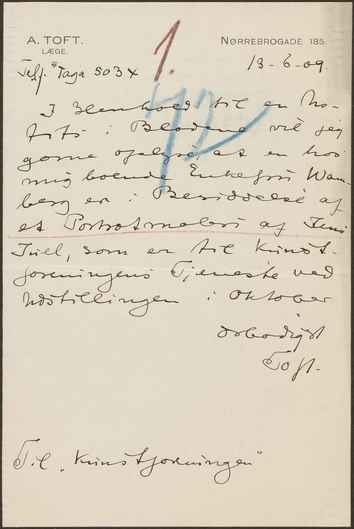 A. TOFT.
LÆGE.
NØRREBROGADE 185.
1.
Telf. "Taga 503x
13-6-09.
42
I Henhold til en No-
tits i Bladene vil jeg
gerne oplyse at en hos
mig boende Enkefru Wam-
berg er i Besiddelse af
et Portrætmaleri af Jens
Juel, som er til Kunst-
foreningens Tjeneste ved
Udstillingen i Oktober
ærbødigst
Toft.
Til "Kunstforeningen"